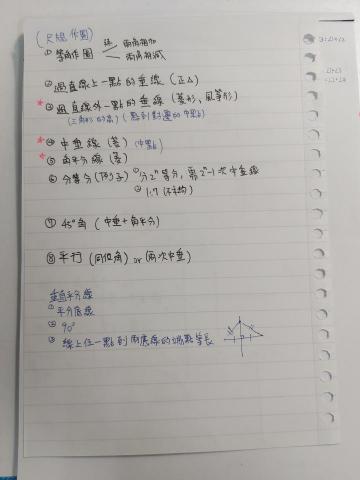 (尺規作圖)
① 等角作圖 兩角相加
兩角相減
② 過直線上一點的垂線 (正△)
* ③ 過直線外一點的垂線 (菱形, 鳶形)
(三角形的高) (點到對邊的中點)
* ④ 中垂線 (菱) (中點)
* ⑤ 角平分線 (菱)
⑥ 分等分 (例子) ① 分2ⁿ等分, 需2ⁿ-1次中垂線
② 1:7
⑦ 45°角 (中垂+角平分)
⑧ 平行 (同位角) or 兩次中垂
垂直平分線
① 平分底線
② 90°
③ 線上任一點到兩底線的端點等長